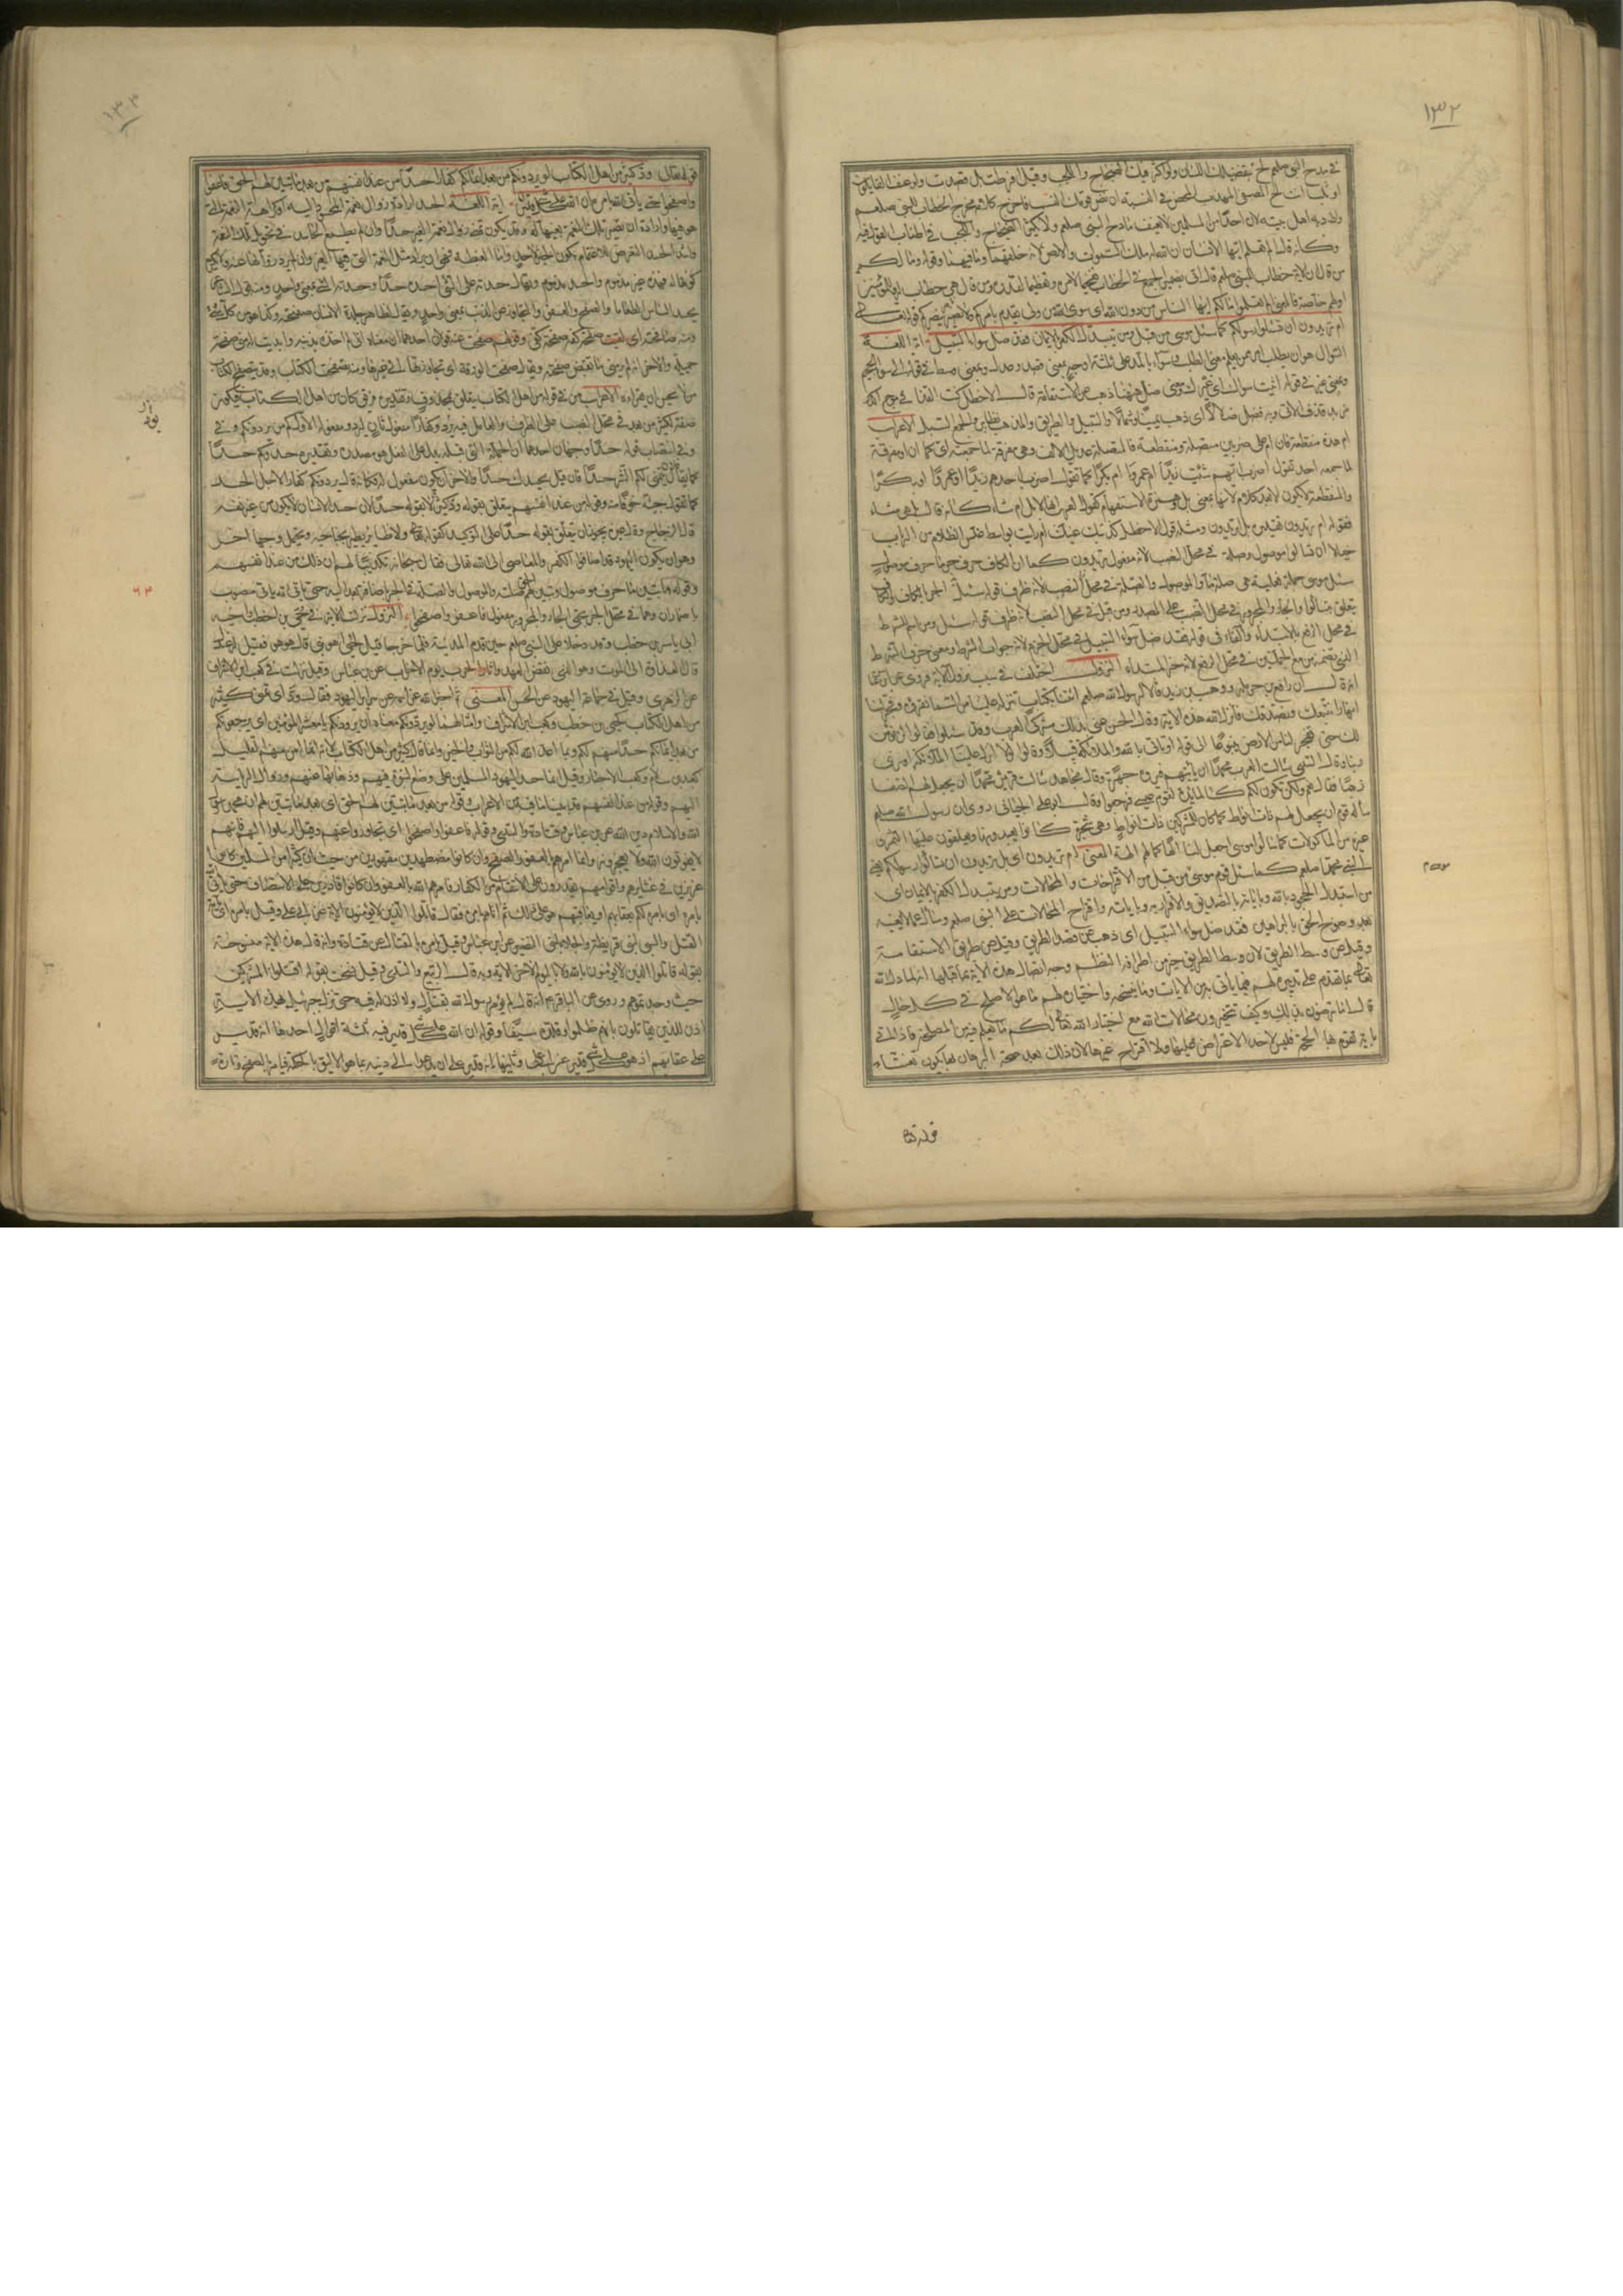 ١٣٢
في مدح النبي صلعم لج بتفضيلك اللسان ولو اكثر فيك الضجاج واللجب وقيل افرطت بل قصدت ولو عنفني القائلون
او ثلبوا انت المصفى المهذب المحض في النسبة ان نص قومك النسب فاخرج كلامه مخرج الخطاب للنبي صلعم
واراد به اهل بيته لان احدا من المسلمين لا يعنف مادح النبي صلعم ولا يكثر الضجاج واللجب في اطناب القول فيه
وكانه قال الم تعلم ايها الانسان ان الله له ملك السموات والارض لانه خلقهما وما فيهما وقوله وما لكم
من قال ان الآية خطاب للنبي صلعم قال اتى بضمير الجمع في الخطاب تفخيما لامره وتعظيما لقدره ومن قال هي خطاب له وللمؤمنين
او لهم خاصة فالمعنى الم تعلموا ما لكم ايها الناس من دون الله اى سوى الله من ولي يقوم بامركم ولا نصير ينصركم قوله تعالى
ام تريدون ان تسئلوا رسولكم كما سئل موسى من قبل ومن يتبدل الكفر بالايمان فقد ضل سواء السبيل آية اللغة
السؤال هو ان يطلب امر ممن يعلم معنى الطلب وسواء بالمد على ثلثة اوجه بمعنى قصد وعدل وبمعنى وسط في قوله الى سواء الجحيم
وبمعنى غير في قولك اتيت سواك اى غيرك ومعنى ضل ههنا ذهب عن الاستقامة قال الاخطل كنت القذا في موج اكدر
مزبد قذف الاتى به فضل ضلالا اى ذهب يمينا وشمالا والسبيل والطريق والمذهب نظاير والجمع السبل الاعراب
ام هذه منقطعة فان ام على ضربين متصلة ومنقطعة فالمتصلة عديل الالف وهى مفرقة لما جمعته اى كما ان او مفرقة
لما جمعه احد تقول اضرب ايهم شئت زيدا ام عمروا ام بكرا كما تقول اضرب احدهم زيدا او عمروا او بكرا
والمنقطعة لا تكون الا بعد كلام لانها بمعنى بل وهمزة الاستفهام كقول العرب انها لابل ام شاء كانه قال بل هى شاء
فقوله ام تريدون تقديره بل اتريدون ومثله قول الاخطل كذبتك عينك ام رايت بواسط غلس الظلام من الرباب
خيالا ان تسئلوا موصول وصلة في محل النصب لانه مفعول تريدون كما ان الكاف حرف جر وما حرف موصول
سئل موسى جملة فعلية هى صلة ما والموصول والصلة في محل الجر بالكاف والكاف
يتعلق بتسألوا والجار والمجرور في محل النصب على المصدر ومن قبل في محل النصب لانه ظرف قوله سئل ومن اسم للشرط
في محل الرفع بالابتداء والفاء في قوله فقد ضل سواء السبيل في محل الجزم لانه جواب الشرط ومعنى حرف الشرط
الذي تضمنه من مع الجملتين في محل الرفع لانه خبر المبتداء النزول اختلف في سبب نزول الآية فروى عن ابن عباس
انه قال ان رافع بن حرملة ووهب بن زيد قالا لرسول الله صلعم ائتنا بكتاب تنزله علينا من السماء نقرؤه وفجر لنا
انهارا نتبعك ونصدقك فانزل الله هذه الآية وقال الحسن عنى بذلك مشركى العرب وقد سئلوا فقالوا لن نؤمن
لك حتى تفجر لنا من الارض ينبوعا الى قوله او تاتى بالله والملائكة قبيلا وقالوا لولا انزل علينا الملائكة او نرى
ربنا وقال السدى سالت العرب محمدا ان ياتيهم بالله فيروه جهرة وقال مجاهد سالت قريش محمدا ان يجعل لهم الصفا
ذهبا فقال نعم ولكن يكون لكم كالمائدة لقوم عيسى فرجعوا وقال ابو على الجبائى روى ان رسول الله صلعم
سأله قوم ان يجعل لهم ذات انواط كما كان للمشركين ذات انواط وهى شجرة كانوا يعبدونها ويعلقون عليها التمر و
غيره من الماكولات كما سألوا موسى اجعل لنا الها كما لهم الهة المعنى ام تريدون اى بل تريدون ان تسألوا رسولكم يعنى
النبي محمدا صلعم كما سئل قوم موسى من قبل من الاقتراحات والمحالات ومن يتبدل الكفر بالايمان اى
من استبدل الجحود بالله وباياته بالتصديق والاقرار به وباياته واقتراح المحالات على النبي صلعم وسأل عما لا يعنيه
بعد وضوح الحق بالبراهين فقد ضل سواء السبيل اى ذهب عن قصد الطريق وقيل عن طريق الاستقامة
وقيل عن وسط الطريق لان وسط الطريق خير من اطرافه النظم وجه اتصال هذه الآية بما قبلها انه لما دل الله
تعالى بما تقدم على تدبيره لهم فيما ياتى به من الايات وما ينسخه واختياره لهم ما هو الاصلح في كل حال
قال اما ترضون بذلك وكيف تتخيرون محالات مع اختيار الله تعالى لكم ما يعلم فيه من المصلحة فاذا اتى
باية تقوم بها الحجة فليس لاحد الاعتراض عليها ولا اقتراح غيرها لان ذلك بعد صحة البرهان بها يكون تعنتا
قوله تعالى
١٣٣
قوله تعالى ود كثير من اهل الكتاب لو يردونكم من بعد ايمانكم كفارا حسدا من عند انفسهم من بعد ما تبين لهم الحق فاعفوا
واصفحوا حتى ياتى الله بامره ان الله على كل شىء قدير آية اللغة الحسد ارادة زوال نعمة المحسود اليه او كراهة النعمة التى
هو فيها وارادة ان تصير تلك النعمة بعينها له وقد يكون تمنى زوال نعمة الغير حسدا وان لم يطمع الحاسد في تحويل تلك النعمة
واشد الحسد التعرض للاغتمام بكون الخير لاحد واما الغبطة فهى ان يراد مثل النعمة التى فيها الغير وان لم يرد زوالها عنه ولا يكره
كونها له فهذه غير مذموم والحسد مذموم ويقال حسدته على الشىء احسده حسدا وحسدته الشىء بمعنى واحد ومنه
يحسد الناس الطعاما والصفح والعفو والتجاوز عن الذنب بمعنى واحد ويقال لظاهر جلدة الانسان صفحته وكذا هو من كل شىء
ومنه صافحته اى لقيت صفحة كفه صفحة كفى وقولهم صفحت عنه فيه قولان احدهما ان معناه انى لم اخذه بذنبه وابديت له منى صفحة
جميلة والاخر انه لم ير منى ما يقبض صفحته ويقال صفحت الورقة اى تجاوزتها الى غيرها ومنه تصفحت الكتاب وقد يتصفح الكتاب
من لا يحسن ان يقراءه الاعراب من في قوله من اهل الكتاب يتعلق بمحذوف وتقديره فريق كائن من اهل الكتاب فيكون
صفة لكثير من بعد في محل النصب على الظرف والعامل فيه يرد وكفارا مفعول ثان ليرد ومفعوله الاول كم من يردونكم وفى
وفى انتصاب قوله حسدا وجهان احدهما ان الجملة التى قبله بدل على الفعل هو مصدره وتقديره حسدوكم حسدا
كما يقال فلان يتمنى لكم الشر حسدا فكانه قيل يحسدك حسدا والاخر ان يكون مفعول له فكانه قال يردونكم كفارا لاجل الحسد
كما تقول جئته خوفا منه وقوله من عند انفسهم يتعلق بقوله ود كثير لا بقوله حسدا لان حسد الانسان لا يكون من غير نفسه
قال الزجاج وقال غيره يجوز ان يتعلق بقوله حسدا على التوكيد كقوله تعالى ولا طائر يطير بجناحيه ويحتمل وجها اخر
وهو ان يكون اليهود قد اضافوا الكفر والمعاصى الى الله تعالى فقال سبحانه تكذيبا لهم ان ذلك من عند انفسهم
وقوله ما تبين ما حرف موصول وتبين لهم الحق صلته والموصول والصلة في محل الجر باضافة بعد اليه حتى ياتى الله ياتى منصوب
باضمار ان وهما في محل الجر بحتى والجار والمجرور مفعول فاعفوا واصفحوا النزول نزلت الآية في حيى بن اخطب واخيه
ابى ياسر بن اخطب وقد دخلا على النبي صلعم حين قدم المدينة فلما خرجا قيل لحيى اهو نبى قال هو هو فقيل ما له عندك
قال العداوة الى الموت وهو الذى نقض العهد واثار الحرب يوم الاحزاب عن ابن عباس وقيل نزلت في كعب بن الاشرف
عن الزهرى وقيل في جماعة اليهود عن الحسن المعنى ثم اخبر الله عز اسمه عن سراير اليهود فقال ود اى تمنى كثير
من اهل الكتاب كحيى بن اخطب وكعب بن الاشرف وامثالهما لو يردونكم معناه ان يردونكم يا معشر المؤمنين اى يرجعونكم
من بعد ايمانكم حسدا منهم لكم بما اعد الله لكم من الثواب والخير وانما قال كثير من اهل الكتاب لانه انما امن منهم القليل
كعبد الله بن سلام وكعب الاحبار وقيل انما حسد اليهود المسلمين على وضع النبوة فيهم وذهابها عنهم وزوال الرياسة
اليهم وقوله من عند انفسهم قد بينا ما فيه من الاعراب وقوله من بعد ما تبين لهم الحق اى بعد ما تبين لهم ان محمدا رسول
الله والاسلام دين الله عن ابن عباس وقتادة والسدى وقوله فاعفوا واصفحوا اى تجاوزوا عنهم وقيل ارسلوا اليهم فانهم
لا يفوتون الله ولا يعجزونه وانما امرهم بالعفو والصفح وان كانوا مضطهدين مقهورين من حيث ان كثيرا من المسلمين كانوا
عزيزين في عشايرهم واقوامهم يقدرون على الانتقام من الكفار فامرهم الله بالعفو وان كانوا قادرين على الانتصاف حتى ياتى الله
بامره اى بامره لكم بعقابهم او يعاقبهم هو على ذلك ثم اتاهم بامره فقال قاتلوا الذين لا يؤمنون الآية عن ابى على وقيل بامره اى باية
القتل والسبى لبنى قريظة والجلاء لبنى النضير عن ابن عباس وقيل بامره بالقتال عن قتادة وانه قال هذه الآية منسوخة
بقوله قاتلوا الذين لا يؤمنون بالله ولا باليوم الاخر الاية وبه قال الربيع والسدى وقيل نسخت بقوله اقتلوا المشركين
حيث وجدتموهم وروى عن الباقر ع انه قال لم يؤمر رسول الله بقتال ولا اذن له فيه حتى نزل جبرئيل بهذه الآية
اذن للذين يقاتلون بانهم ظلموا وقلده سيفا وقوله ان الله على كل شىء قدير فيه ثلثة اقوال احدها انه قدير
على عقابهم اذ هو على كل شىء قدير عن ابى على وثانيها انه قدير على ان يدعوا الى دينه بما هو الاليق بالحكمة فيامر بالصفح تارة
٦٣